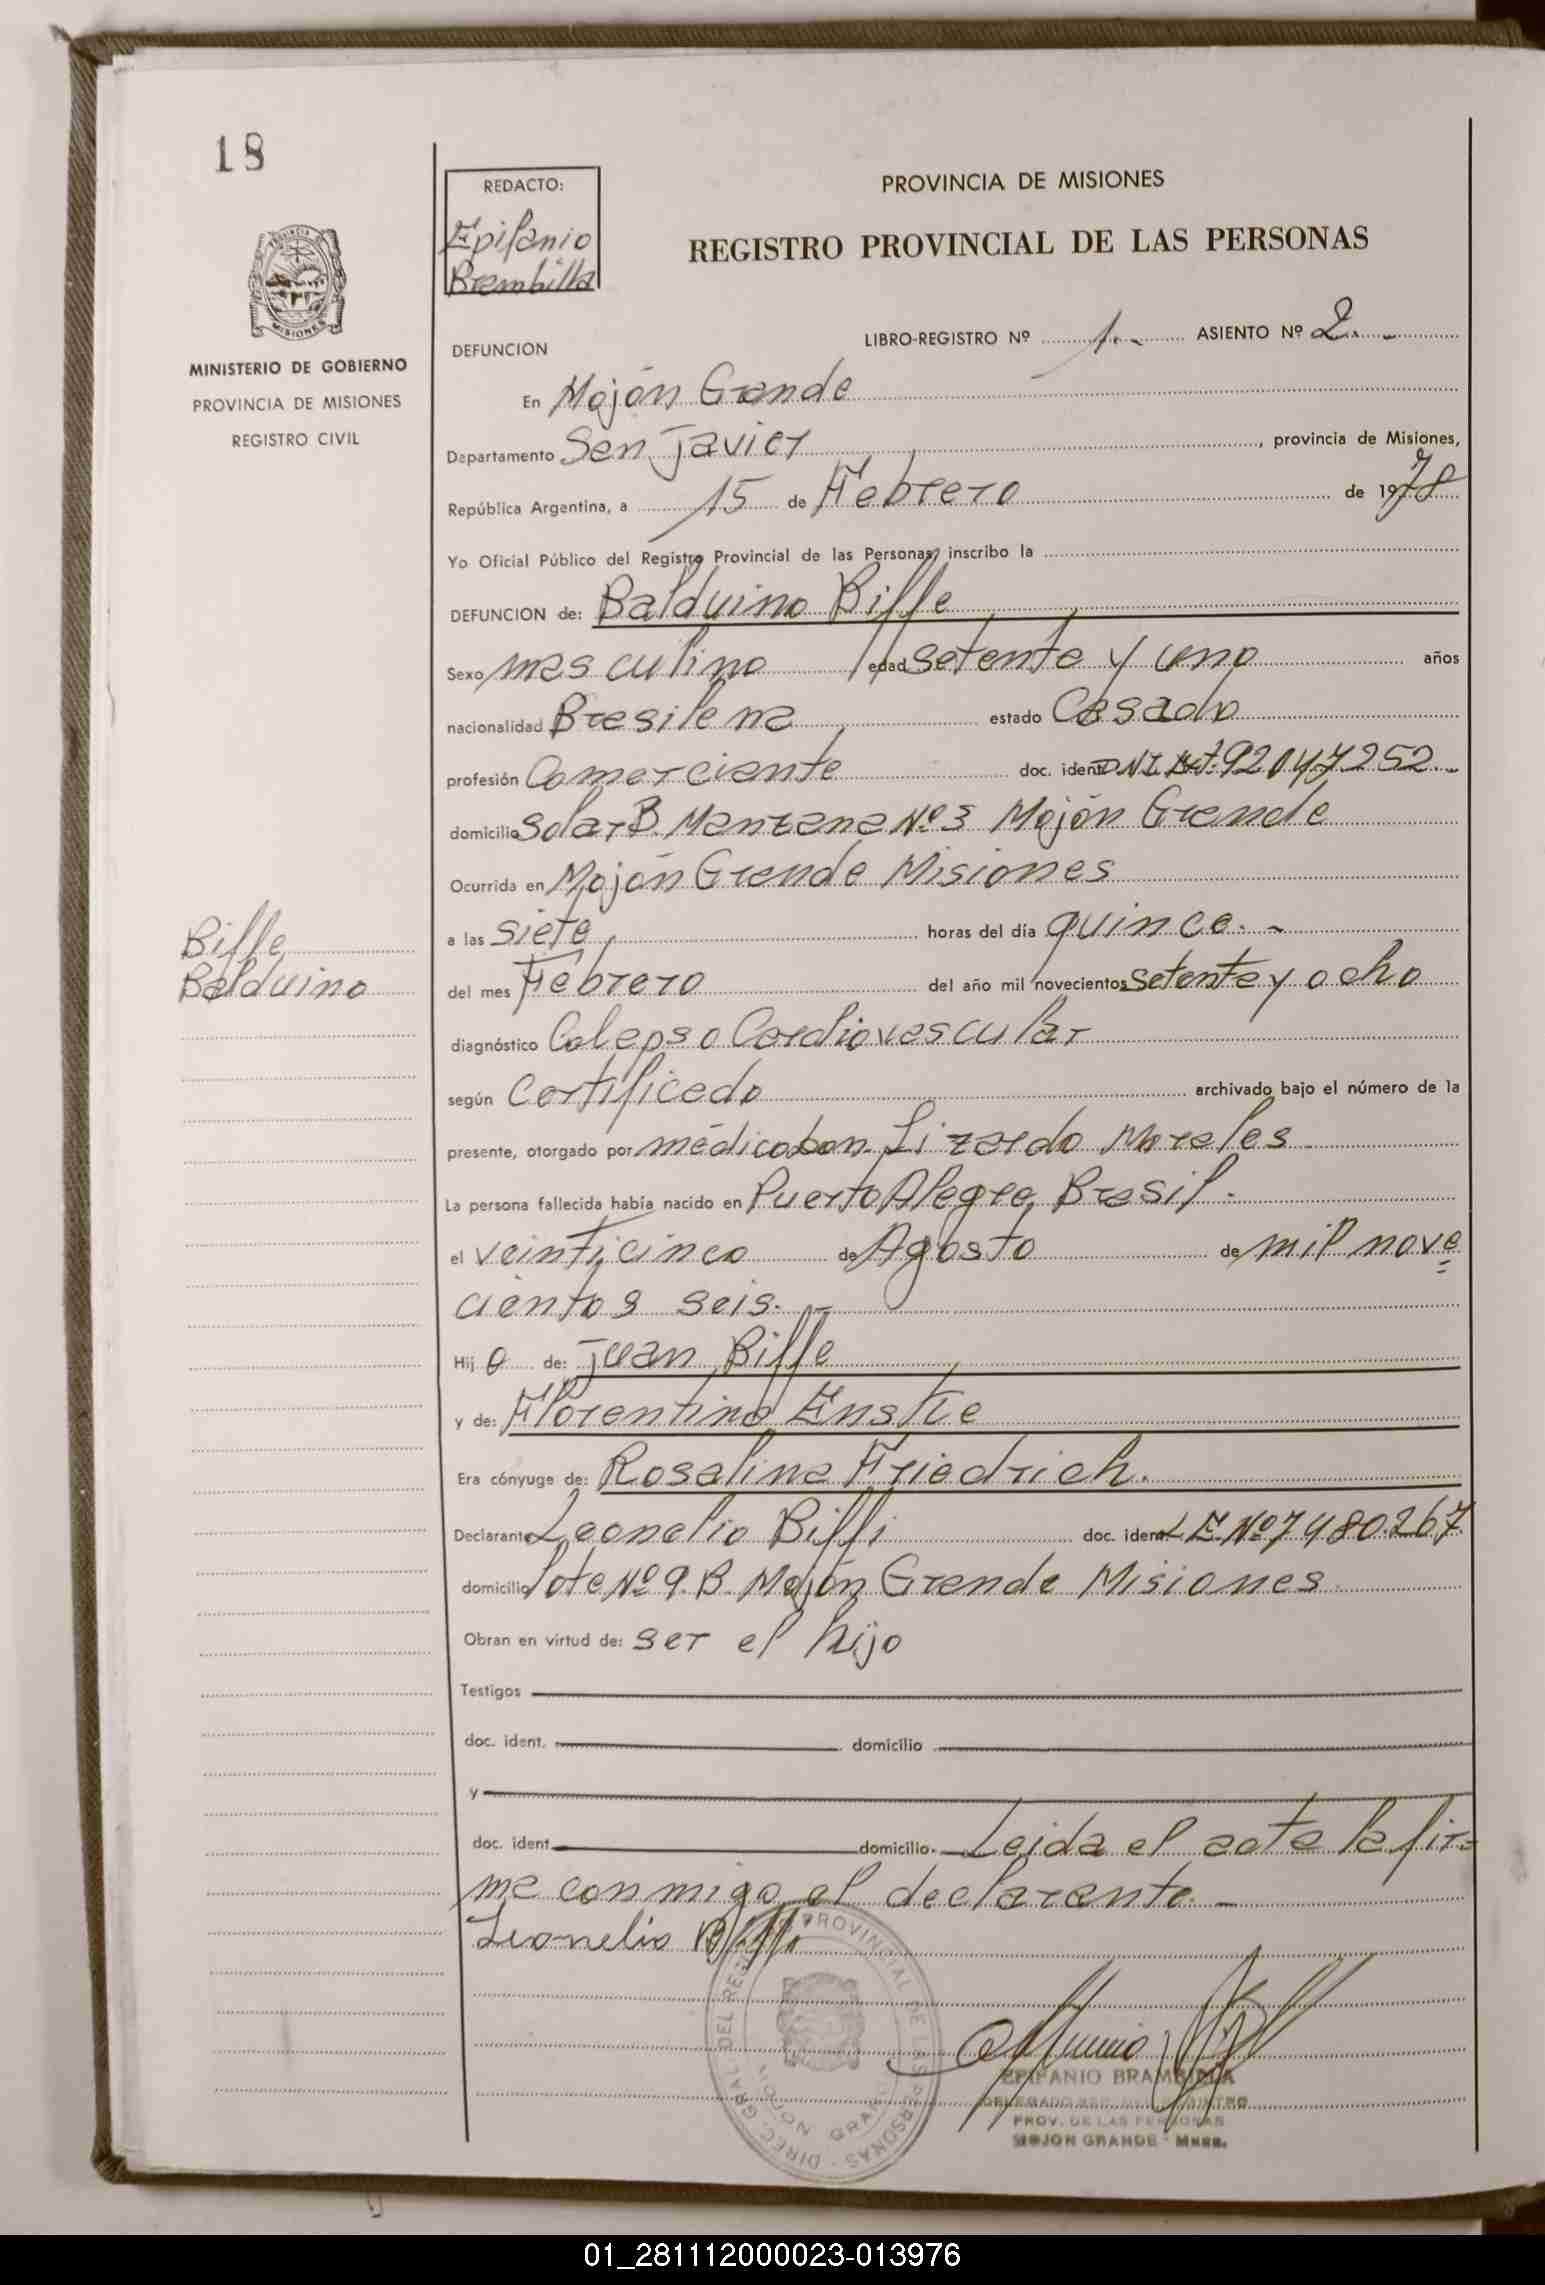 18
REDACTO:
Epifanio
Brembilla
PROVINCIA DE MISIONES
REGISTRO PROVINCIAL DE LAS PERSONAS
MISIONES
MINISTERIO DE GOBIERNO
PROVINCIA DE MISIONES
REGISTRO CIVIL
LIBRO-REGISTRO Nº 1.- ASIENTO Nº 2.-
DEFUNCION
En Mojón Grande
Departamento San Javier, provincia de Misiones,
República Argentina, a 15 de Febrero de 1978
Yo Oficial Público del Registro Provincial de las Personas, inscribo la
DEFUNCION de: Balduino Biffe
Sexo masculino edad setenta y uno años
nacionalidad Brasilena estado Casado
profesión Comerciante doc. ident. DNI Nº 92047252.-
domicilio Solar B. Manzana Nº 3 Mojón Grande
Ocurrida en Mojón Grande Misiones
a las siete horas del día quince.-
del mes Febrero del año mil novecientos setenta y ocho
diagnóstico Colapso Cardiovascular
según Certificado archivado bajo el número de la
presente, otorgado por médico Don Lizardo Morales
La persona fallecida había nacido en Puerto Alegre, Brasil.
el veinticinco de Agosto de mil nove
cientos seis.-
Hij o de: Juan Biffe
y de: Florentina
Era cónyuge de: Rosalina Friedrich.
Declarante Leonelio Biffi doc. ident. L.E. Nº 7480.267
domicilio lote Nº 9. B. Mojón Grande Misiones
Obran en virtud de: ser el hijo
Testigos
doc. ident. domicilio
y
doc. ident. domicilio. Leida el acta la fir-
ma conmigo el declarante.-
Leonelio
Biffe
Balduino
DIREC. GRAL. DEL REG. PROVINCIAL DE LAS PERSONAS
MOJON GRANDE
EPIFANIO BRAMBILLA
PROV. DE LAS PERSONAS
MOJON GRANDE - Mnes.
01_281112000023-013976